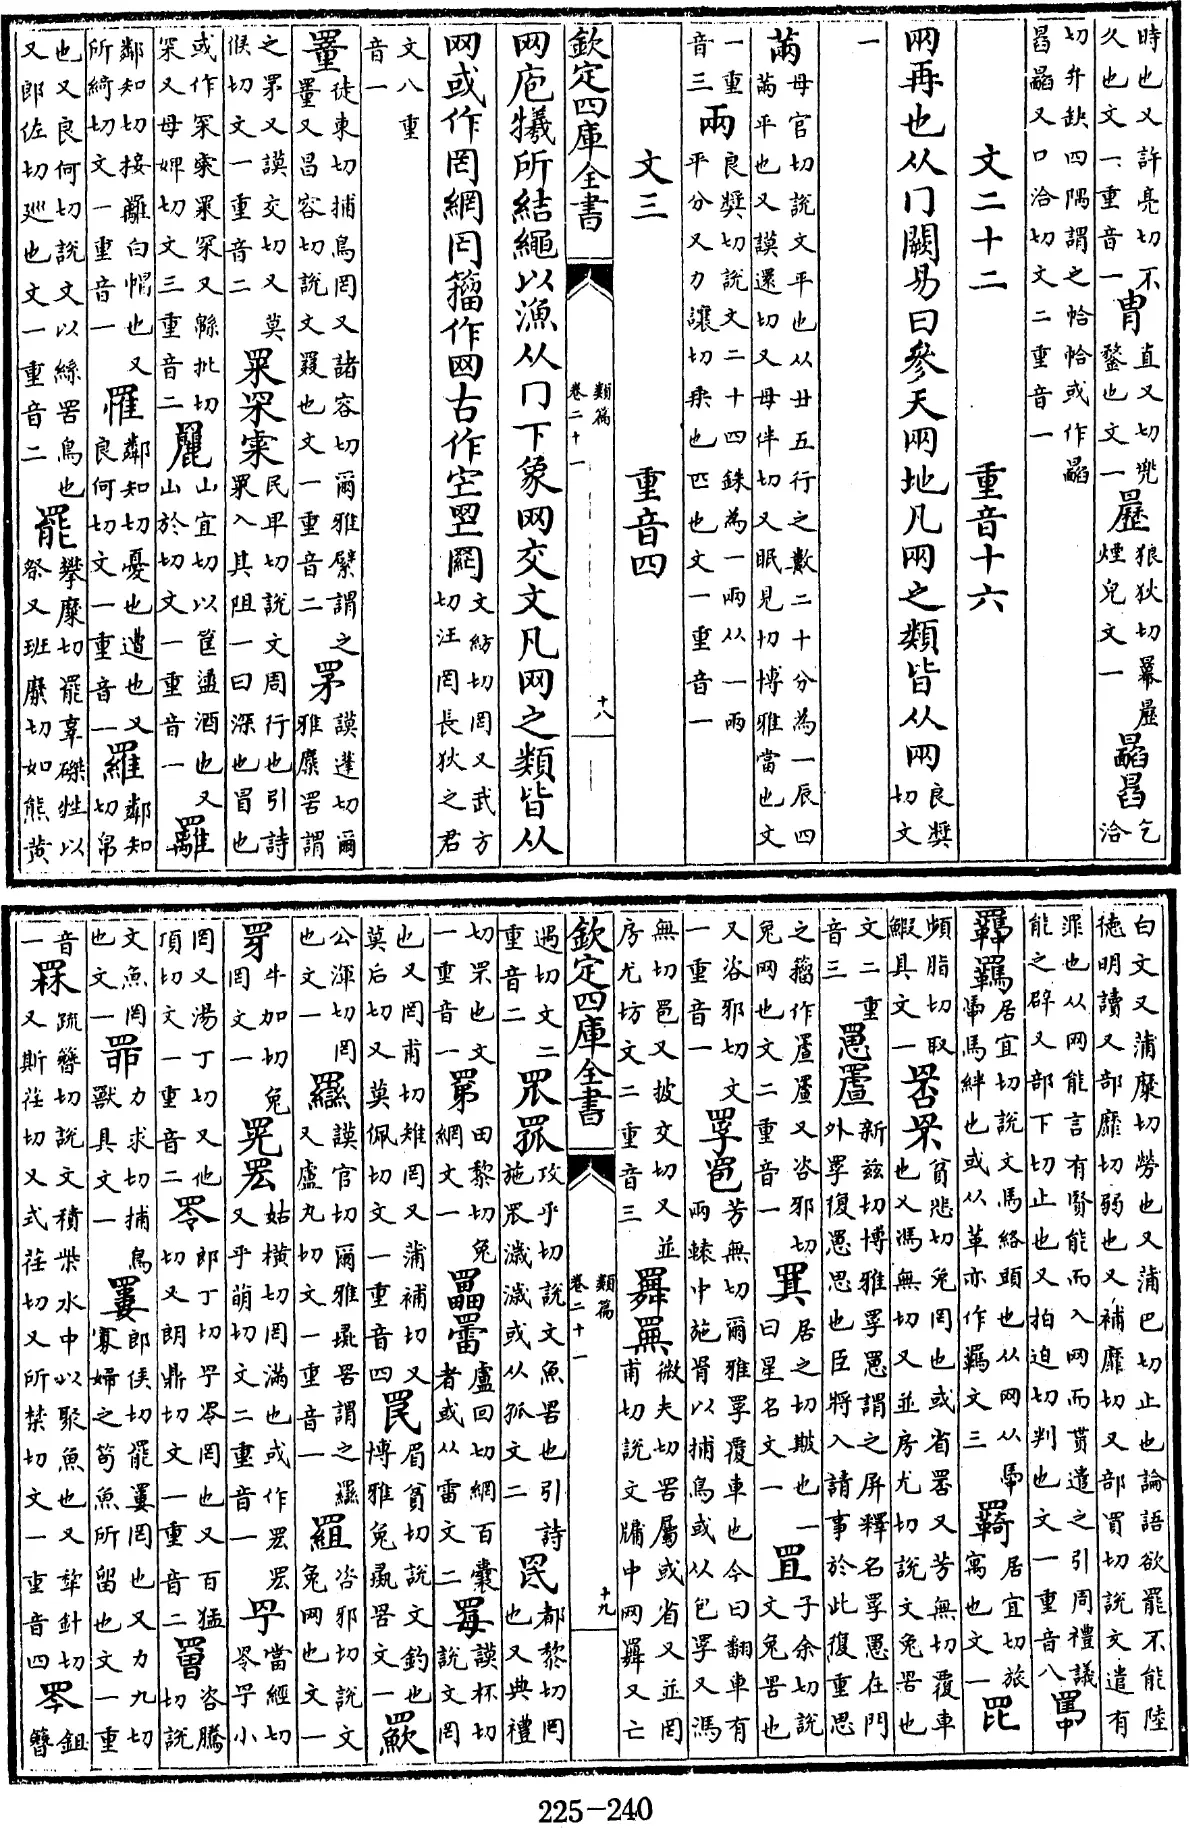 時也又許亮切不久也文一重音一冑直又切兜鍪也文一狼狄切羃煙皃文一乞洽
切弁缺四隅謂之帢帢或作又口洽切文二重音一
文二十二　重音十六
㒳再也从冂闕易曰參天㒳地凡㒳之類皆从㒳良獎切文
一
㒼母官切說文平也从廿五行之數二十分為一辰四㒼平也又謨還切又母伴切又眠見切博雅當也文
一重音三兩良獎切說文二十四銖為一兩从一㒳平分又力讓切乘也匹也文一重音一
文三　重音四
欽定四庫全書　類篇卷二十一　十八
网庖犧所結繩以漁从冂下象网交文凡网之類皆从
网或作罔網𦉾籀作𦉫古作文紡切罔又武方切汪罔長狄之君
文八重音一
罿徒東切捕鳥罔又諸容切爾雅繴謂之罿又昌容切說文罬也文一重音二罞謨蓬切爾雅麋罟謂
之罞又謨交切又莫候切文一重音二罙民卑切說文周行也引詩罙入其阻一曰深也冒也
或作又緜批切罙又母婢切文三重音二䍦山宜切以筐盪酒也又山於切文一重音一䍦
鄰知切接䍦白帽也又所綺切文一重音一罹鄰知切憂也遭也又良何切文一重音一羅鄰知切帛
也又良何切說文以絲罟鳥也又郎佐切廵也文一重音二罷攀糜切罷辜磔牲以祭又班糜切如熊黄
白文又蒲糜切勞也又蒲巴切止也論語欲罷不能陸徳明讀又部靡切弱也又補靡切又部買切說文遣有
罪也从网能言有賢能而入网而貰遣之引周禮議能之辟又部下切止也又拍迫切判也文一重音八䍠
羈居宜切說文馬絡頭也从网从馽馽馬絆也或从革亦作羈文三羇居宜切旅寓也文一䍡
頻脂切取鰕具文一貧悲切兔罔也或省又芳無切覆車也又馮無切又並房尤切說文兔罟也
文二重音三罳新兹切博雅罦罳謂之屏釋名罦罳在門外罦復罳思也臣將入請事於此復重思
之籀作又咨邪切兔网也文二重音一居之切欺也一曰星名文一罝子余切說文兔罟也
又咨邪切文一重音一罦芳無切爾雅罦覆車也今曰翻車有兩轅中施罥以捕鳥或从包罦又馮
無切又披交切又並房尤坊文二重音三微夫切罟屬或省又並罔甫切說文牖中网又亡
欽定四庫全書　類篇卷二十一　十九
遇切文二重音二罛攻乎切說文魚罟也引詩施罛濊濊或从孤文二罠都黎切罔也又典禮
切罘也文一重音一田黎切兔網文一盧回切網百囊者或从雷文二謨杯切說文罔
也又罔甫切雉罔又蒲補切又莫后切又莫佩切文一重音四罠眉貧切說文釣也博雅兔罟文一
公渾切罔也文一謨官切爾雅彘罟謂之又盧丸切文一重音一罝咨邪切說文兔网也文一
牛加切兔罔文一姑横切罔滿也或作又乎萌切文二重音一當經切小
罔又湯丁切又他頂切文一重音二郎丁切罔也又百猛切又朗鼎切文一重音二罾咨騰切說
文魚罔也文一力求切捕鳥獸具文一郎侯切罔也又力九切寡婦之笱魚所留也文一重
音一罧疏簪切說文積柴水中以聚魚也又犂針切又斯荏切又式荏切又所禁切文一重音四鉏簪
225-240